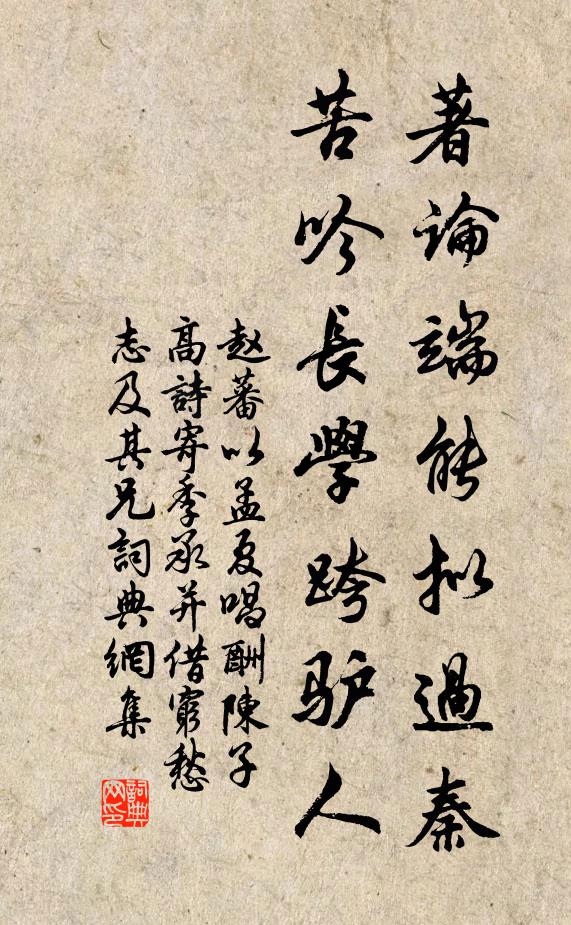 著論端能拟過秦
苦吟長學跨驴人
赵蕃以孟夏唱酬陳子
高詩寄季承并借窮愁
志及其兄詞典網集
詞典网印